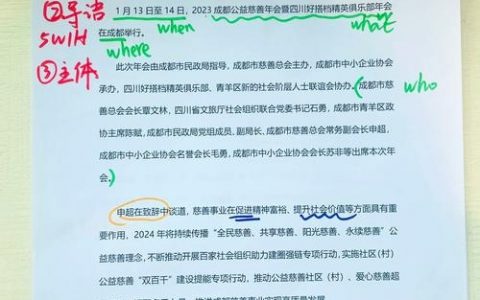 ②导语
5W1H
③主体
1 月 13 日至 14 日，2023 成都公益慈善年会暨四川好搭档精英俱乐部年会
when
what
在成都举行。
where
此次年会由成都市民政局指导，成都市慈善总会、成都市中小企业协会
承办，四川好搭档精英俱乐部、青羊区新的社会阶层人士联谊会协办。(成都市慈
who
善总会会长覃文林，四川省文旅厅社会组织联合党委书记石勇，成都市青羊区政
协主席陈赋，成都市民政局党组成员、副局长，成都市慈善总会常务副会长申超，
成都市中小企业协会名誉会长毛勇，成都市中小企业协会会长苏非等出席本次年
会。)
申超在致辞中谈道，慈善事业在促进精神富裕、提升社会价值等方面具有重
要作用，2024 年将持续传播“全民慈善、共享慈善、阳光慈善、永续慈善”公
益慈善理念，不断推动开展百家社会组织助力建圈强链专项行动，实施社区（村）
公益慈善“双百千”建设提能专项行动，推动公益慈善社区（村）、爱心慈善超